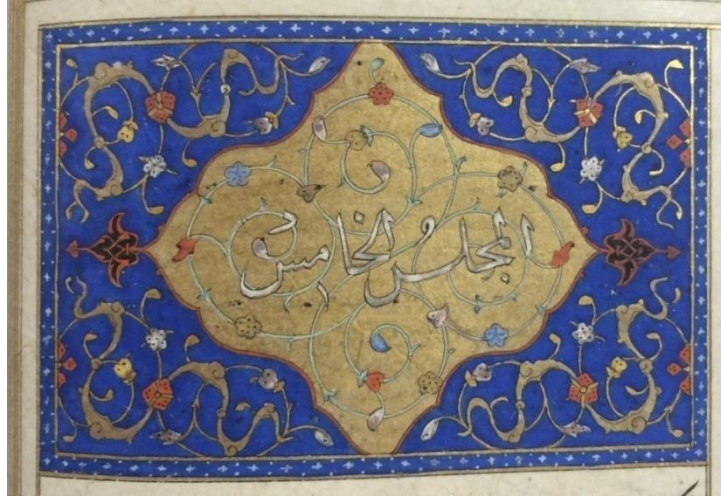 المجلس الخامس